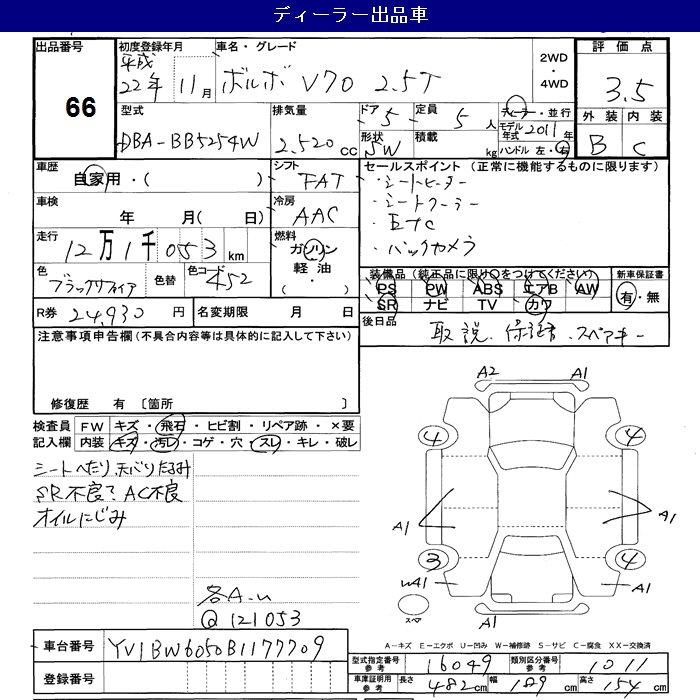 ディーラー出品車
出品番号 66
初度登録年月 平成22年11月
車名・グレード ボルボ V70 2.5T
2WD・4WD
評価点 3.5
外装 内装
B C
型式 DBA-BB5254W
排気量 2.520cc
ドア 5
形状 SW
定員 5人
積載 kg
ディーラー・並行
モデル年式 2011年
ハンドル 左・右
車歴 自家用・( )
シフト FAT
セールスポイント (正常に機能するものに限ります)
・シートヒーター
・シートクーラー
・ETC
・バックカメラ
車検 年 月( 日)
冷房 AAC
走行 12万1千053km
燃料 ガソリン・軽油・
色 ブラックサファイア
色替
色コード 452
装備品 (純正品に限り○をつけてください)
PS PW ABS エアB AW
SR ナビ TV カワ
新車保証書 有・無
R券 24,930円
名変期限 月 日
後日品 取説、保証書、スペアキー
注意事項申告欄 (不具合内容等は具体的に記入して下さい)
修復歴 有 〔箇所 〕
検査員記入欄
FW キズ・飛石・ヒビ割・リペア跡・×要
内装 キズ・汚レ・コゲ・穴・スレ・キレ・破レ
シートへたり、天バリたるみ
SR不良? AC不良
オイルにじみ
各A.u
@121053
A2 A1
4 4
A1 A1
3 4
WA1 A1
スペア
A1
A-キズ E-エクボ U-凹み W-補修跡 S-サビ C-腐食 XX-交換済
車台番号 YV1BW6050B1177709
登録番号
型式指定番号参考 16049
類別区分番号参考 1011
車庫証明用参考 長さ 482cm 幅 189cm 高さ 154cm